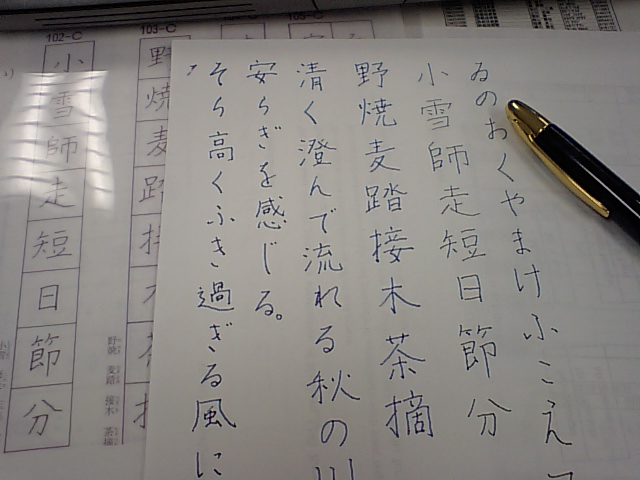 ゐのおくやまけふこえ
小雪師走短日節分
野焼麦踏接木茶摘
清く澄んで流れる秋の川
安らぎを感じる。
そら高くふき過ぎる風に
103-C
野焼麦踏接
野焼 麦踏 接木 茶摘
102-C
小雪師走短日節分